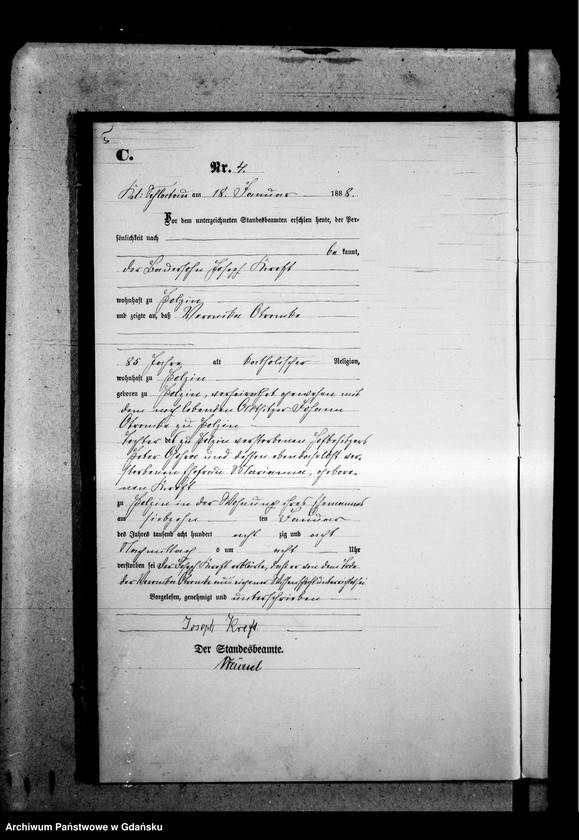 C.
Nr. 4.
am 18. Januar 1888.
Vor dem unterzeichneten Standesbeamten erschien heute, der Per-
sönlichkeit nach
be kannt,
der Bauersohn Joseph Kreft
wohnhaft zu Polzin
und zeigte an, daß Veronika
85 Jahre alt katholischer Religion,
wohnhaft zu Polzin
geboren zu Polzin, verheirathet gewesen mit
dem noch lebenden Altsitzer Johann
zu Polzin
Tochter der zu Polzin verstorbenen Hofbesitzers
Peter und dessen ebendaselbst ver-
storbenen Ehefrau Marianna, gebore-
nen Kreft
zu Polzin in der Wohnung ihres Ehemannes
am siebzehn ten Januar
des Jahres tausend acht hundert acht zig und acht
Nachmittags um acht Uhr
verstorben sei der Joseph Kreft erklärte, daß er von dem Tode
der Veronika aus eigener Wissenschaft unterrichtet sei
Vorgelesen, genehmigt und unterschrieben
Joseph Kreft
Der Standesbeamte.
Archiwum Państwowe w Gdańsku